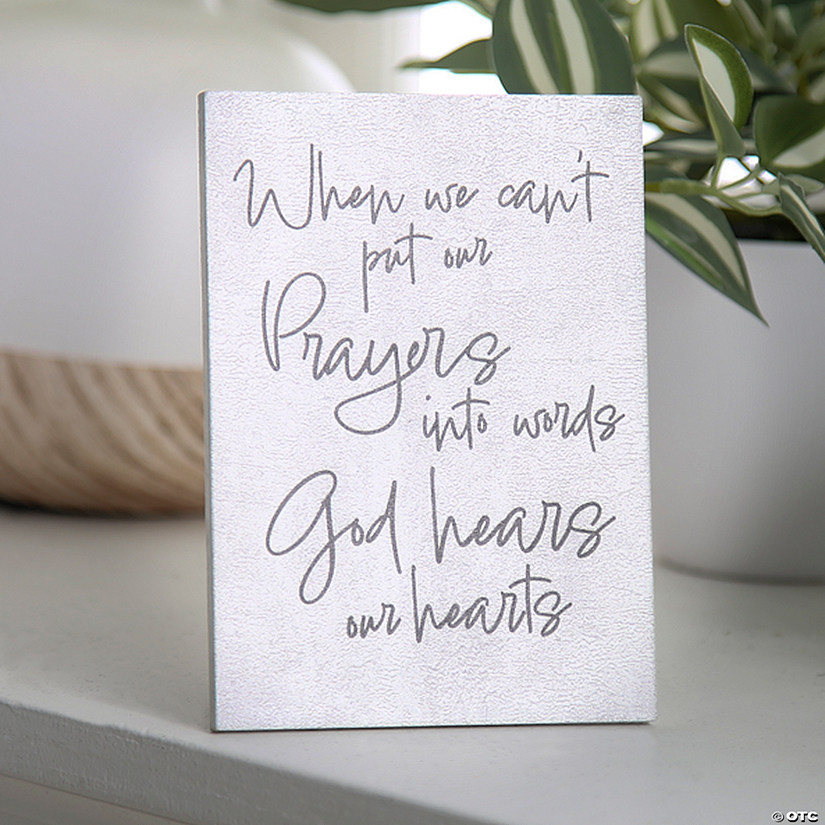 When we can't
put our
Prayers
into words
God hears
our hearts
© OTC